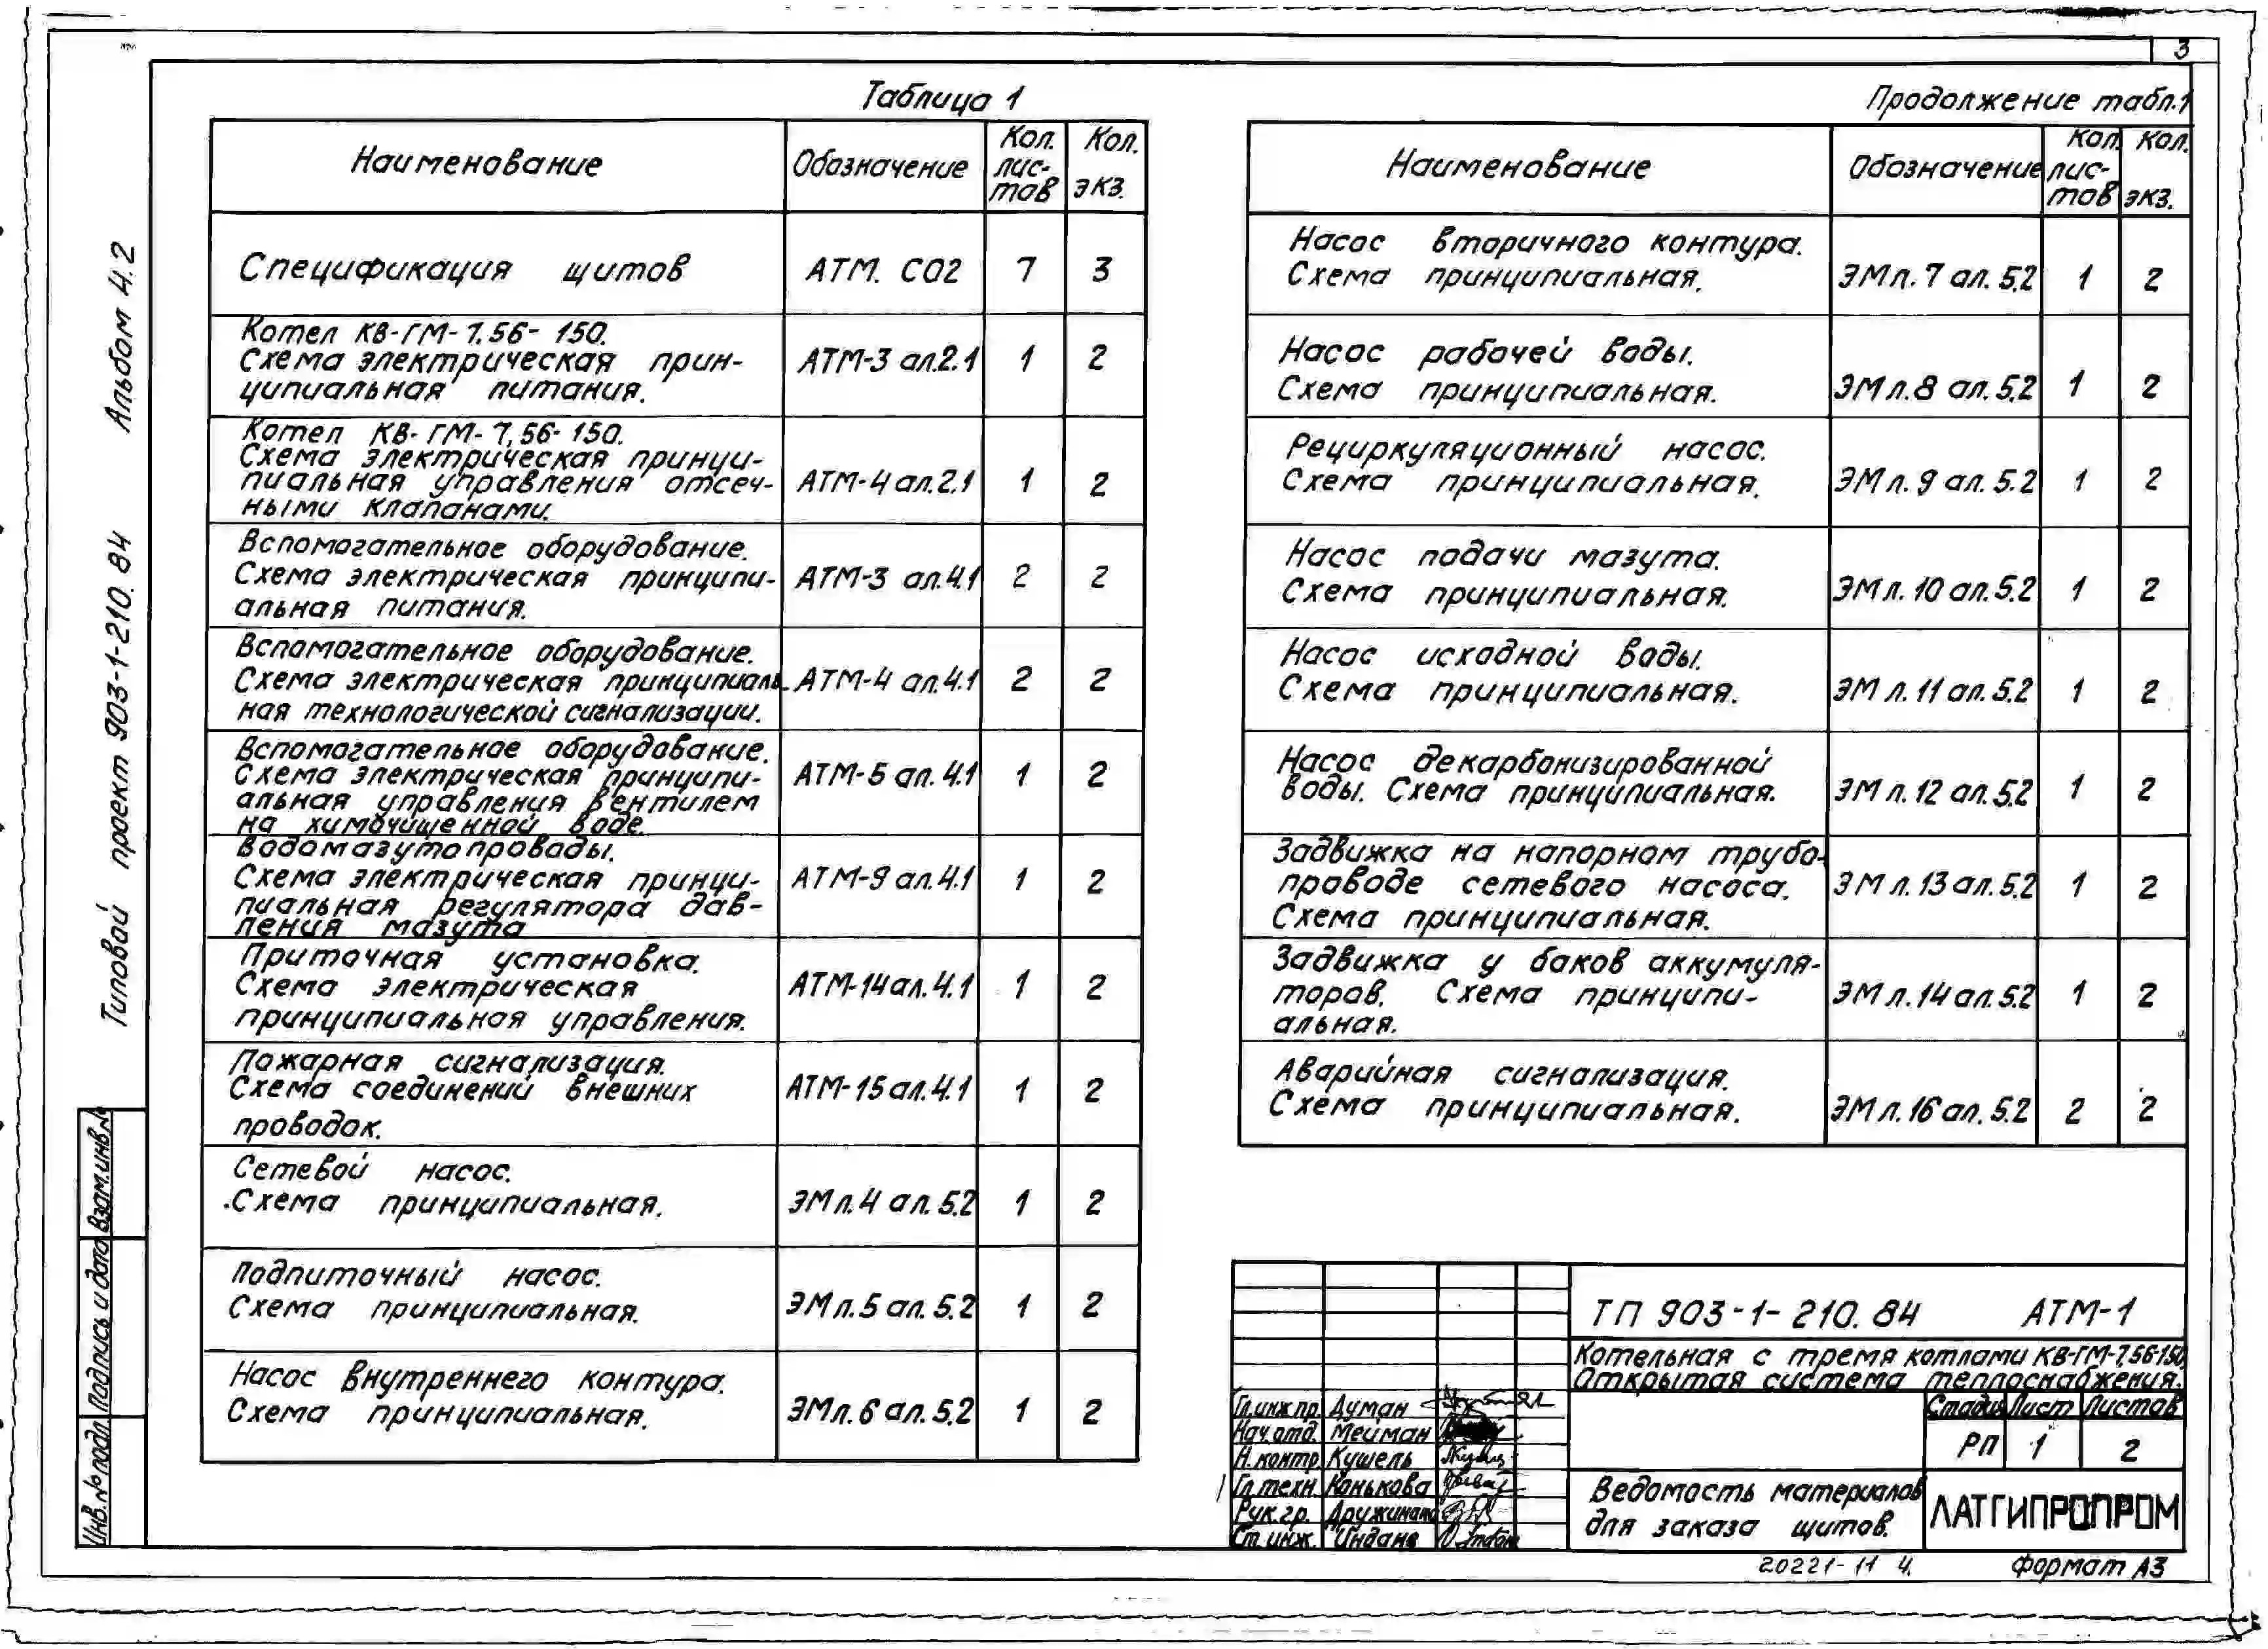 3
Таблица 1
Наименование
Обозначение
Кол.
лис-
тов
Кол.
экз.
Спецификация щитов
АТМ. СО2
7
3
Котел КВ-ГМ-7.56-150.
Схема электрическая прин-
ципиальная питания.
АТМ-3 ал.2.1
1
2
Котел КВ-ГМ-7,56-150.
Схема электрическая принци-
пиальная управления отсеч-
ными клапанами.
АТМ-4 ал.2.1
1
2
Вспомогательное оборудование.
Схема электрическая принципи-
альная питания.
АТМ-3 ал.4.1
2
2
Вспомогательное оборудование.
Схема электрическая принципиаль-
ная технологической сигнализации.
АТМ-4 ал.4.1
2
2
Вспомогательное оборудование.
Схема электрическая принципи-
альная управления вентилем
на химочищенной воде.
АТМ-5 ал.4.1
1
2
Водомазутопроводы.
Схема электрическая принци-
пиальная регулятора дав-
ления мазута
АТМ-9 ал.4.1
1
2
Приточная установка.
Схема электрическая
принципиальная управления.
АТМ-14 ал.4.1
1
2
Пожарная сигнализация.
Схема соединений внешних
проводок.
АТМ-15 ал.4.1
1
2
Сетевой насос.
Схема принципиальная.
ЭМ л.4 ал.5.2
1
2
Подпиточный насос.
Схема принципиальная.
ЭМ л.5 ал.5.2
1
2
Насос внутреннего контура.
Схема принципиальная.
ЭМ л.6 ал.5.2
1
2
Продолжение табл.1
Наименование
Обозначение
Кол.
лис-
тов
Кол.
экз.
Насос вторичного контура.
Схема принципиальная.
ЭМ л.7 ал.5.2
1
2
Насос рабочей воды.
Схема принципиальная.
ЭМ л.8 ал.5.2
1
2
Рециркуляционный насос.
Схема принципиальная.
ЭМ л.9 ал.5.2
1
2
Насос подачи мазута.
Схема принципиальная.
ЭМ л.10 ал.5.2
1
2
Насос исходной воды.
Схема принципиальная.
ЭМ л.11 ал.5.2
1
2
Насос декарбонизированной
воды. Схема принципиальная.
ЭМ л.12 ал.5.2
1
2
Задвижка на напорном трубо-
проводе сетевого насоса.
Схема принципиальная.
ЭМ л.13 ал.5.2
1
2
Задвижка у баков аккумуля-
торов. Схема принципи-
альная.
ЭМ л.14 ал.5.2
1
2
Аварийная сигнализация.
Схема принципиальная.
ЭМ л.16 ал.5.2
2
2
Типовой проект 903-1-210.84 Альбом 4.2
Инв.№ подл
Подпись и дата
Взам.инв.№
ТП 903-1-210.84 АТМ-1
Котельная с тремя котлами КВ-ГМ-7,56-150
Открытая система теплоснабжения.
Гл.инж.пр. Думан
Нач.отд. Мейман
Н.контр. Кушель
Гл.техн. Конькова
Рук.гр. Дружинана
Ст.инж. Индане
Стади Лист Листов
РП 1 2
Ведомость материалов
для заказа щитов.
ЛАТГИПРОПРОМ
20221-11 4.
Формат А3